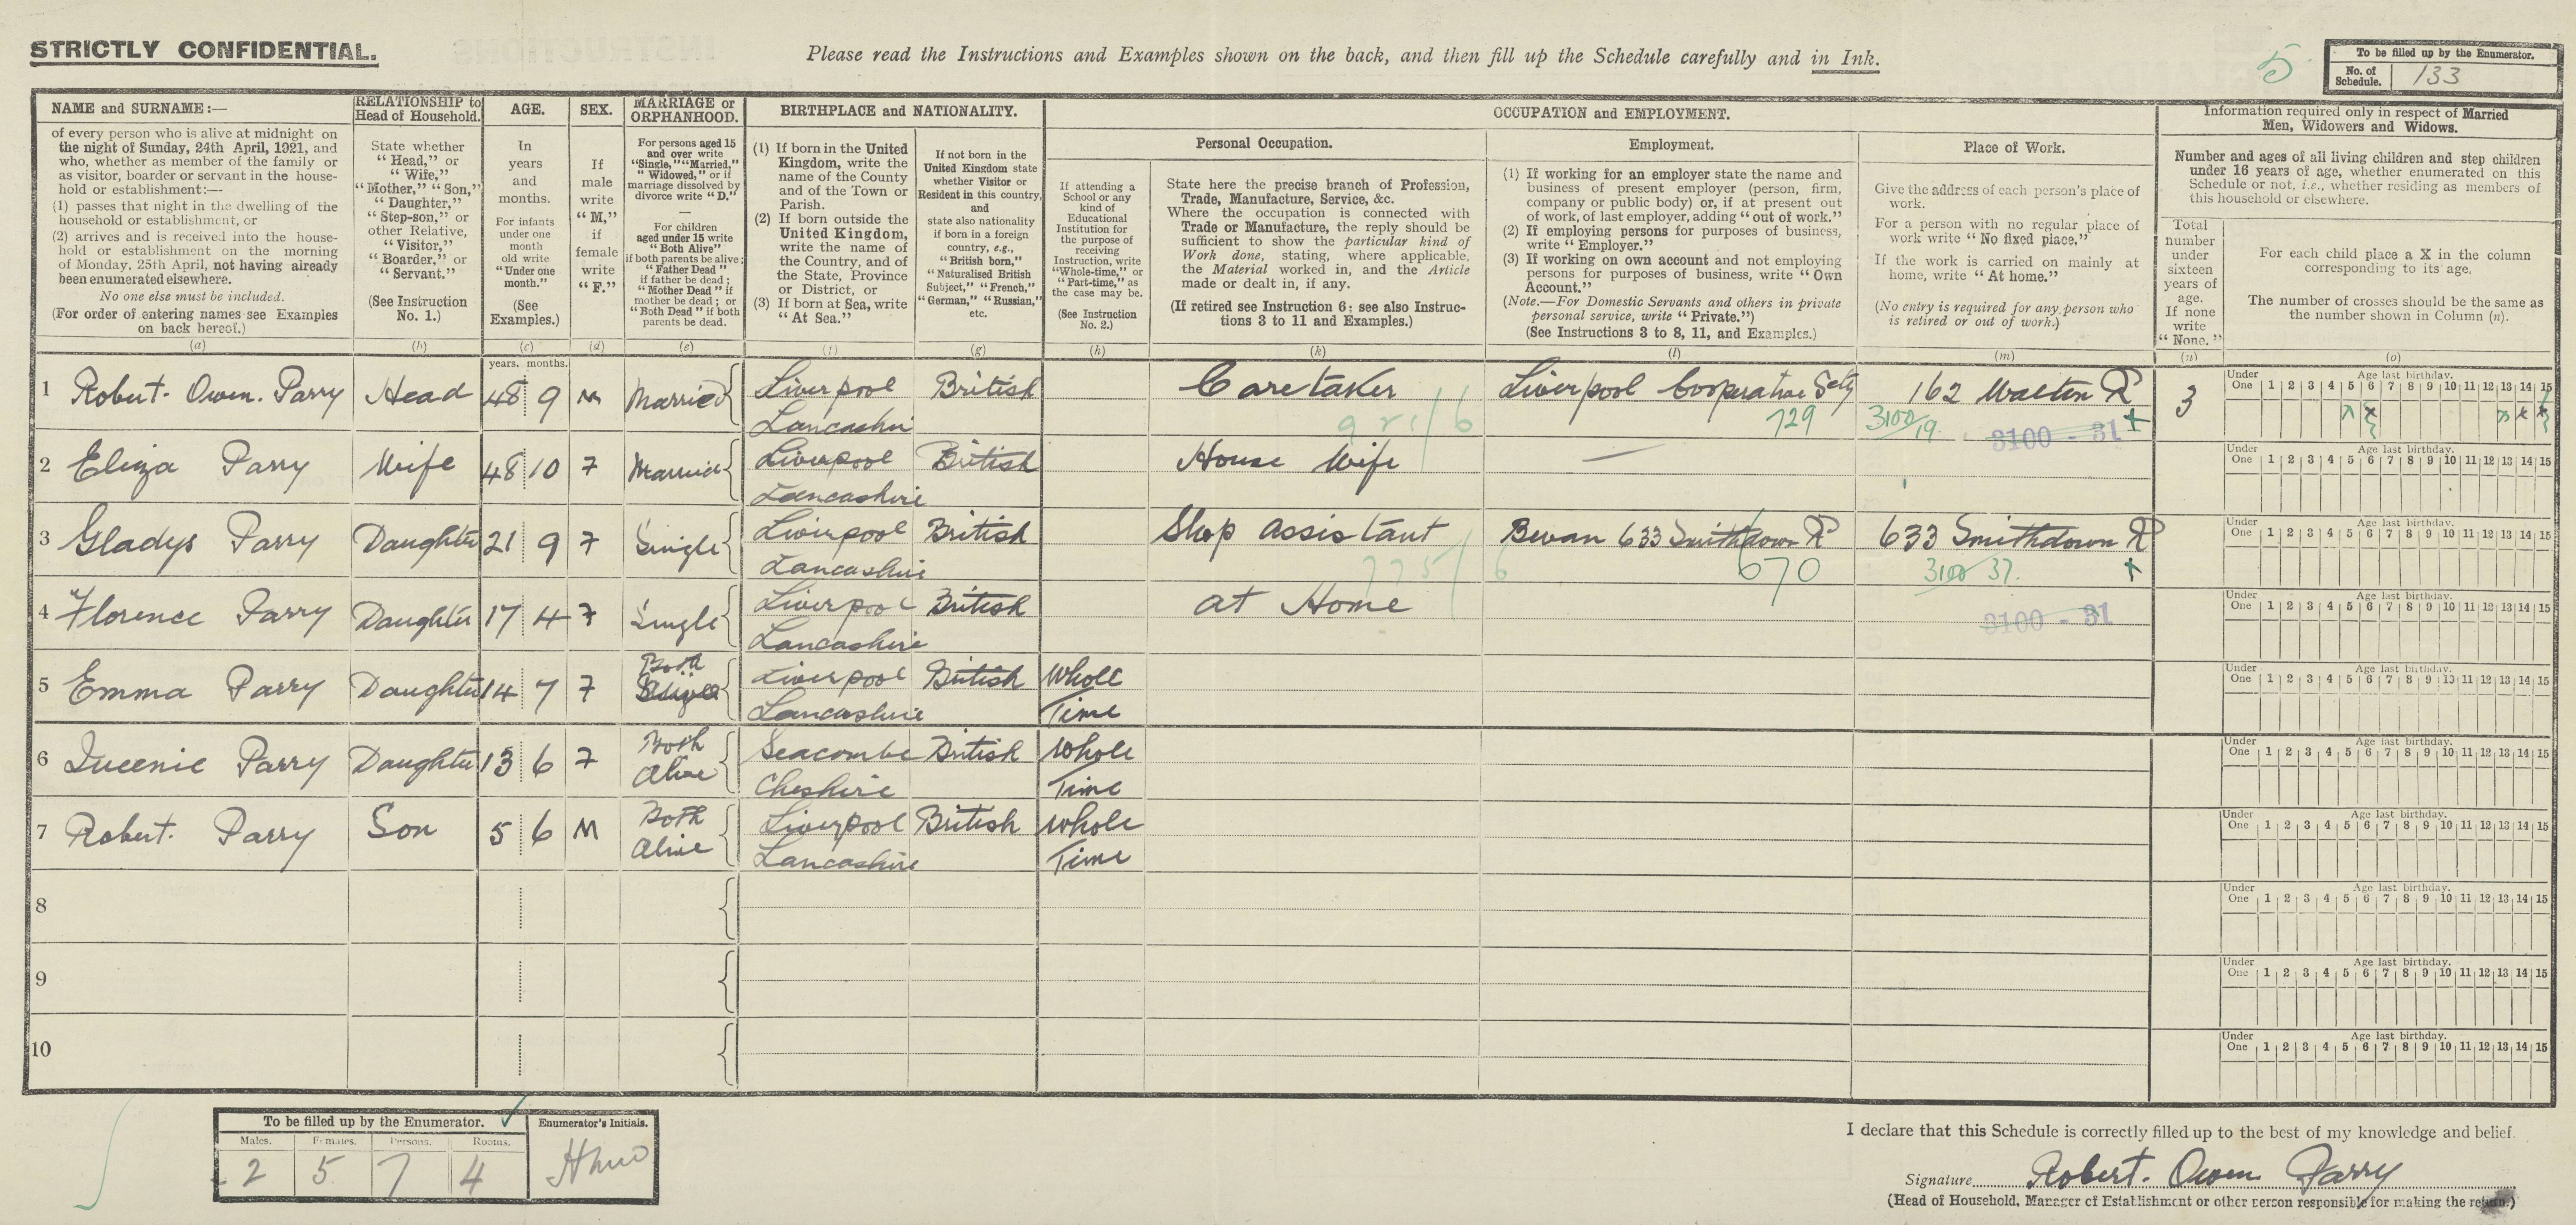 STRICTLY CONFIDENTIAL.
Please read the Instructions and Examples shown on the back, and then fill up the Schedule carefully and in Ink.
5
To be filled up by the Enumerator.
No. of Schedule. 133
NAME and SURNAME:—
of every person who is alive at midnight on
the night of Sunday, 24th April, 1921, and
who, whether as member of the family or
as visitor, boarder or servant in the house-
hold or establishment:—
(1) passes that night in the dwelling of the
household or establishment, or
(2) arrives and is received into the house-
hold or establishment on the morning
of Monday, 25th April, not having already
been enumerated elsewhere.
No one else must be included.
(For order of entering names see Examples
on back hereof.)
(a)
RELATIONSHIP to
Head of Household.
State whether
"Head," or
"Wife,"
"Mother," "Son,"
"Daughter,"
"Step-son," or
other Relative,
"Visitor,"
"Boarder," or
"Servant."
(See Instruction
No. 1.)
(b)
AGE.
In
years
and
months.
For infants
under one
month
old write
"Under one
month."
(See
Examples.)
(c)
SEX.
If
male
write
"M,"
if
female
write
"F."
(d)
MARRIAGE or
ORPHANHOOD.
For persons aged 15
and over write
"Single," "Married,"
"Widowed," or if
marriage dissolved by
divorce write "D."
—
For children
aged under 15 write
"Both Alive"
if both parents be alive;
"Father Dead"
if father be dead;
"Mother Dead" if
mother be dead; or
"Both Dead" if both
parents be dead.
(e)
BIRTHPLACE and NATIONALITY.
(1) If born in the United
Kingdom, write the
name of the County
and of the Town or
Parish.
(2) If born outside the
United Kingdom,
write the name of
the Country, and of
the State, Province
or District, or
(3) If born at Sea, write
"At Sea."
(f)
If not born in the
United Kingdom state
whether Visitor or
Resident in this country,
and
state also nationality
if born in a foreign
country, e.g.,
"British born,"
"Naturalised British
Subject," "French,"
"German," "Russian,"
etc.
(g)
OCCUPATION and EMPLOYMENT.
If attending a
School or any
kind of
Educational
Institution for
the purpose of
receiving
Instruction, write
"Whole-time," or
"Part-time," as
the case may be.
(See Instruction
No. 2.)
(h)
Personal Occupation.
State here the precise branch of Profession,
Trade, Manufacture, Service, &c.
Where the occupation is connected with
Trade or Manufacture, the reply should be
sufficient to show the particular kind of
Work done, stating, where applicable,
the Material worked in, and the Article
made or dealt in, if any.
(If retired see Instruction 6: see also Instruc-
tions 3 to 11 and Examples.)
(k)
Employment.
(1) If working for an employer state the name and
business of present employer (person, firm,
company or public body) or, if at present out
of work, of last employer, adding "out of work."
(2) If employing persons for purposes of business,
write "Employer."
(3) If working on own account and not employing
persons for purposes of business, write "Own
Account."
(Note.—For Domestic Servants and others in private
personal service, write "Private.")
(See Instructions 3 to 8, 11, and Examples.)
(l)
Place of Work.
Give the address of each person's place of
work.
For a person with no regular place of
work write "No fixed place."
If the work is carried on mainly at
home, write "At home."
(No entry is required for any person who
is retired or out of work.)
(m)
Information required only in respect of Married
Men, Widowers and Widows.
Number and ages of all living children and step children
under 16 years of age, whether enumerated on this
Schedule or not, i.e., whether residing as members of
this household or elsewhere.
Total
number
under
sixteen
years of
age.
If none
write
"None."
(n)
For each child place a X in the column
corresponding to its age.
The number of crosses should be the same as
the number shown in Column (n).
(o)
years. months.
1 Robert. Owen. Parry Head 48 9 M Married Liverpool British Caretaker Liverpool Cooperative Sety 162 Walton Rd 3
Lancashir 729 3100/19. 3100 - 31
Under One 1 2 3 4 5 6 7 8 9 10 11 12 13 14 15
Age last birthday.
2 Eliza Parry Wife 48 10 F Married Liverpool British House Wife —
Lancashire
Under One 1 2 3 4 5 6 7 8 9 10 11 12 13 14 15
Age last birthday.
3 Gladys Parry Daughter 21 9 F Single Liverpool British Shop Assistant Bevan 633 Smithdown Rd 633 Smithdown Rd
Lancashire 775/6 670 3100 37.
Under One 1 2 3 4 5 6 7 8 9 10 11 12 13 14 15
Age last birthday.
4 Florence Parry Daughter 17 4 F Single Liverpool British at Home 3100 - 31
Lancashire
Under One 1 2 3 4 5 6 7 8 9 10 11 12 13 14 15
Age last birthday.
5 Emma Parry Daughter 14 7 F Both Liverpool British Whole
Lancashire Time
Under One 1 2 3 4 5 6 7 8 9 10 11 12 13 14 15
Age last birthday.
6 Queenie Parry Daughter 13 6 F Both Alive Seacombe British Whole
Cheshire Time
Under One 1 2 3 4 5 6 7 8 9 10 11 12 13 14 15
Age last birthday.
7 Robert. Parry Son 5 6 M Both Alive Liverpool British Whole
Lancashire Time
Under One 1 2 3 4 5 6 7 8 9 10 11 12 13 14 15
Age last birthday.
8
Under One 1 2 3 4 5 6 7 8 9 10 11 12 13 14 15
Age last birthday.
9
Under One 1 2 3 4 5 6 7 8 9 10 11 12 13 14 15
Age last birthday.
10
Under One 1 2 3 4 5 6 7 8 9 10 11 12 13 14 15
Age last birthday.
To be filled up by the Enumerator.
Enumerator's Initials.
Males. Females. Persons. Rooms.
2 5 7 4
I declare that this Schedule is correctly filled up to the best of my knowledge and belief.
Signature Robert. Owen Parry
(Head of Household, Manager of Establishment or other person responsible for making the return.)